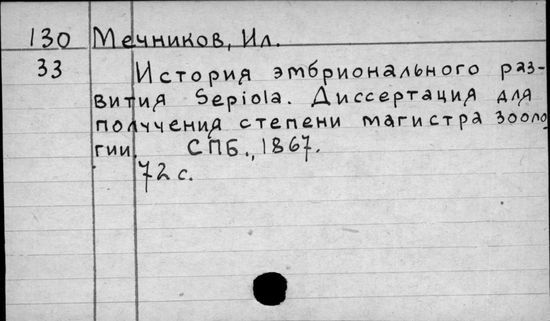 130 Мечников, Ил.
33 История эмбрионального раз-
вития Sepiola. Диссертация для
получения степени магистра зооло
гии. СПБ., 1867.
72 с.